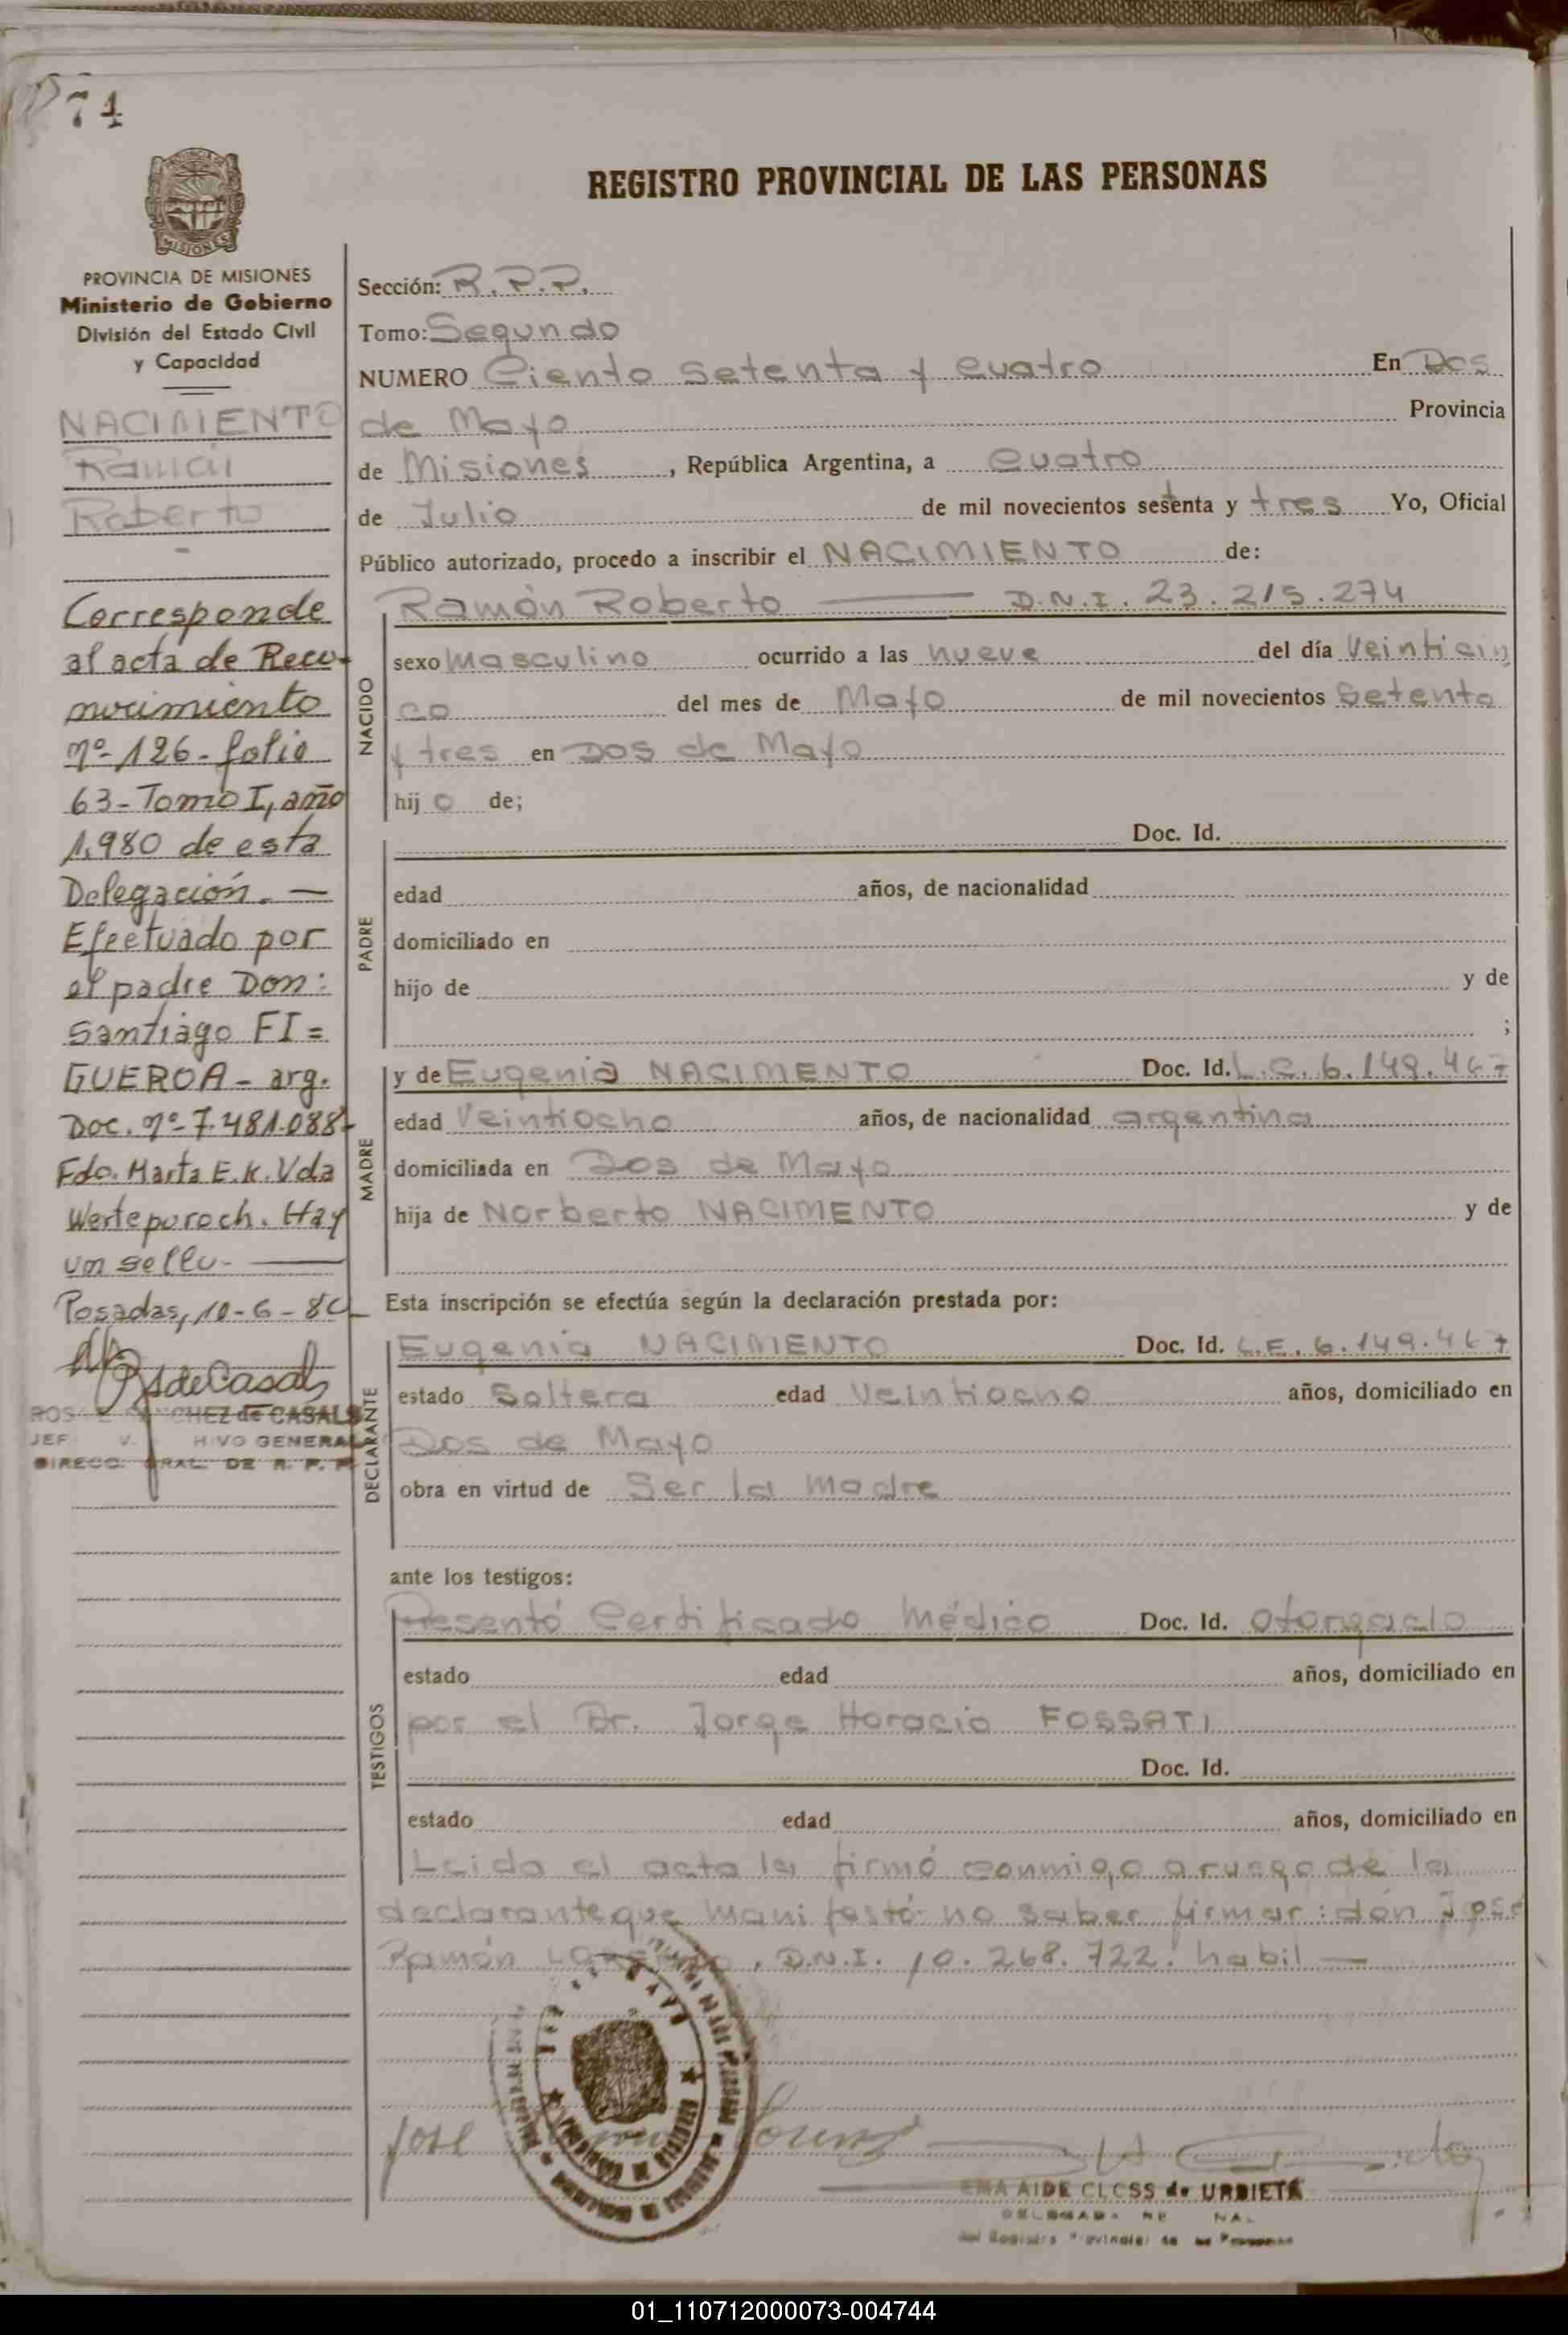 74
REGISTRO PROVINCIAL DE LAS PERSONAS
MISIONES
PROVINCIA DE MISIONES
Ministerio de Gobierno
División del Estado Civil
y Capacidad
NACIMIENTO
Ramón
Roberto
Corresponde
al acta de Reco-
nocimiento
nº 126- folio
63- Tomo I, año
1.980 de esta
Delegación. —
Efectuado por
el padre Don:
Santiago FI=
GUEROA - arg.
Doc. nº 7.481.088-
Fdo. Marta E. K. Vda
Hay
un sello- —
Posadas, 10-6-80
CHEZ de CASALS
GENERAL
DE R. P. P.
Sección: R.P.P.
Tomo: Segundo
NUMERO Ciento setenta y cuatro En Dos
de Mayo Provincia
de Misiones, República Argentina, a cuatro
de Julio de mil novecientos setenta y tres Yo, Oficial
Público autorizado, procedo a inscribir el NACIMIENTO de:
NACIDO
Ramón Roberto — D.N.I. 23.215.274
sexo masculino ocurrido a las nueve del día Veinticin
co del mes de Mayo de mil novecientos Setenta
y tres en Dos de Mayo
hijo de;
PADRE
Doc. Id.
edad años, de nacionalidad
domiciliado en
hijo de y de
;
MADRE
y de Eugenia NACIMENTO Doc. Id. L.C. 6.149.467
edad Veintiocho años, de nacionalidad argentina
domiciliada en Dos de Mayo
hija de Norberto NACIMENTO y de
Esta inscripción se efectúa según la declaración prestada por:
DECLARANTE
Eugenia NACIMENTO Doc. Id. L.E. 6.149.467
estado Soltera edad Veintiocho años, domiciliado en
Dos de Mayo
obra en virtud de Ser la madre
ante los testigos:
TESTIGOS
Presentó Certificado Médico Doc. Id. otorgado
estado edad años, domiciliado en
por el Dr. Jorge Horacio FOSSATI
Doc. Id.
estado edad años, domiciliado en
Leida el acta la firmó conmigo a ruego de la
declarante que manifestó no saber firmar: don José
Ramón D.N.I. 10.268.722. habil —
José
AIDE CLOSS de URBIETA
01_110712000073-004744